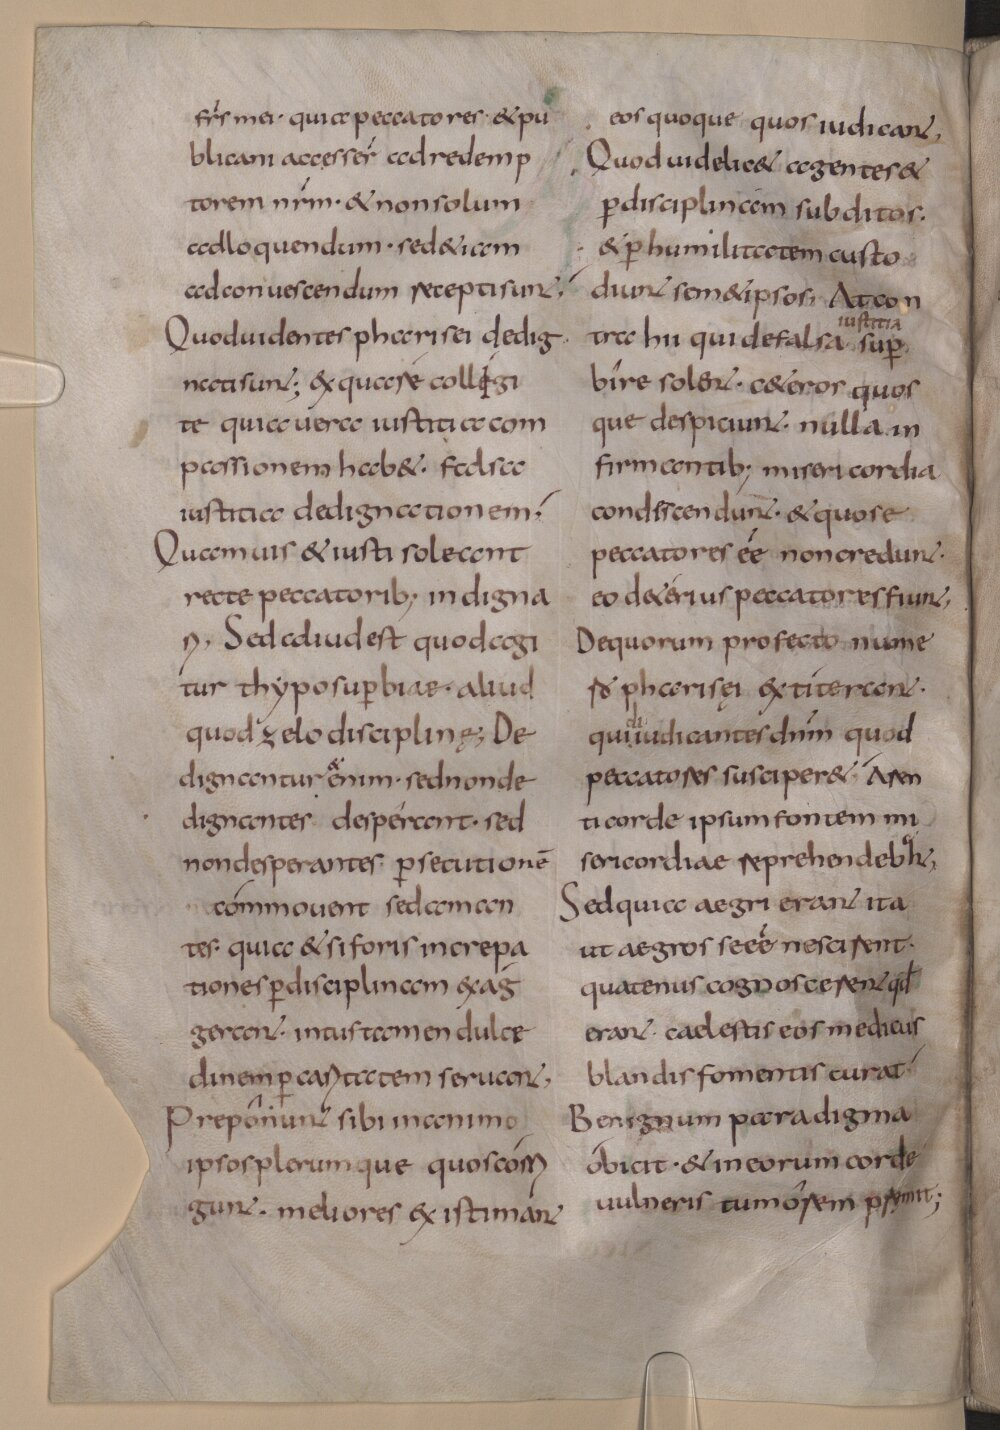 fr̄s mei· quia peccatores· & pu
blicani accesser̄ ad redemp
torem nr̄m· & non solum
adloquendum· sed & iam
ad convescendum recepti sunt;
Quod videntes pharisei dedig
nati sunt; ex qua re colligi
te quia vera iustitia com
passionem hab&· falsa
iustitia dedignationem;
Quamvis & iusti soleant
recte peccatorib; indigna
ri, Sed aliud est quod agi
tur thypo sup̄biae· aliud
quod zelo disciplinę; De
dignantur enim· sed non de
dignantes desperant· sed
non desperantes· p̄secutionē
commovent sed aman
tes· quia & si foris increpa
tiones p̄ disciplinam exag
gerant· intus tamen dulce
dinem p̄ caritatem servant,
Preponunt sibi in animo
ipsos plerumque quos corri
gunt· meliores existimant
eos quoque quos iudicant,
Quod videlic& agentes &
p̄ disciplinam subditos·
& p̄ humilitatem custo
diunt sem&ipsos; At con
tra hii qui de falsa iustitia sup̄
bire solent· c&eros quos
que despiciunt· nulla in
firmantib; misericordia
condiscendunt· & quo se
peccatores ēē non credunt·
eo deterius peccatores fiunt,
De quorum profecto nume
ro pharisęi extiterant·
qui diiudicantes dn̄m quod
peccatores susciper&· Aren
ti corde ipsum fontem mi
sericordiae reprehendebant,
Sed quia aegri erant ita
ut aegros se eē̄ nescirent·
quatenus cognoscerent qđ
erant· caelestis eos medicus
blandis fomentis curat·
Benignum paradigma
obicit· & in eorum corde
vulneris tumorem premit;